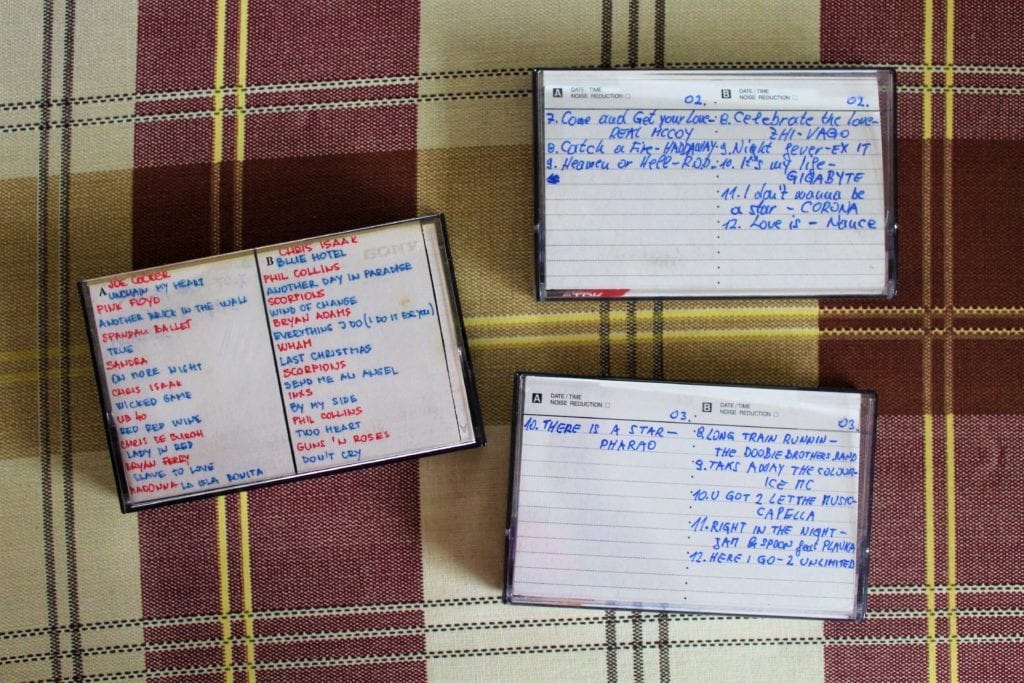 A JOE COCKER
UNCHAIN MY HEART
PINK FLOYD
ANOTHER BRICK IN THE WALL
SPANDAU BALLET
TRUE
SANDRA
ON MORE NIGHT
CHRIS ISAAK
WICKED GAME
UB 40
RED RED WINE
CHRIS DE BURGH
LADY IN RED
BRYAN FERRY
SLAVE TO LOVE
MADONNA LA ISLA BONITA
B CHRIS ISAAK
BLUE HOTEL
PHIL COLLINS
ANOTHER DAY IN PARADISE
SCORPIONS
WIND OF CHANGE
BRYAN ADAMS
EVERYTHING I DO (I DO IT FOR YOU)
WHAM
LAST CHRISTMAS
SCORPIONS
SEND ME AN ANGEL
INXS
BY MY SIDE
PHIL COLLINS
TWO HEART
GUNS 'N ROSES
DON'T CRY
A DATE/TIME
NOISE REDUCTION
02.
7. Come and Get your Love-
REAL MCCOY
8. Catch a Fire-HADDAWAY
9. Heaven or Hell-R.O.D.
B DATE/TIME
NOISE REDUCTION
02.
8. Celebrate the love-
ZHI-VAGO
9. Night fever-EX IT
10. It's my life-
GIGABYTE
11. I don't wanna be
a star - CORONA
12. Love is - Nance
TDK
A DATE/TIME
NOISE REDUCTION
03.
10. THERE IS A STAR-
PHARAO
B DATE/TIME
NOISE REDUCTION
03.
8. LONG TRAIN RUNNIN-
THE DOOBIE BROTHERS BAND
9. TAKS AWAY THE COLOUR-
ICE MC
10. U GOT 2 LET THE MUSIC-
CAPELLA
11. RIGHT IN THE NIGHT-
JAM & SPOON feat PLAVKA
12. HERE I GO-2 UNLIMITED